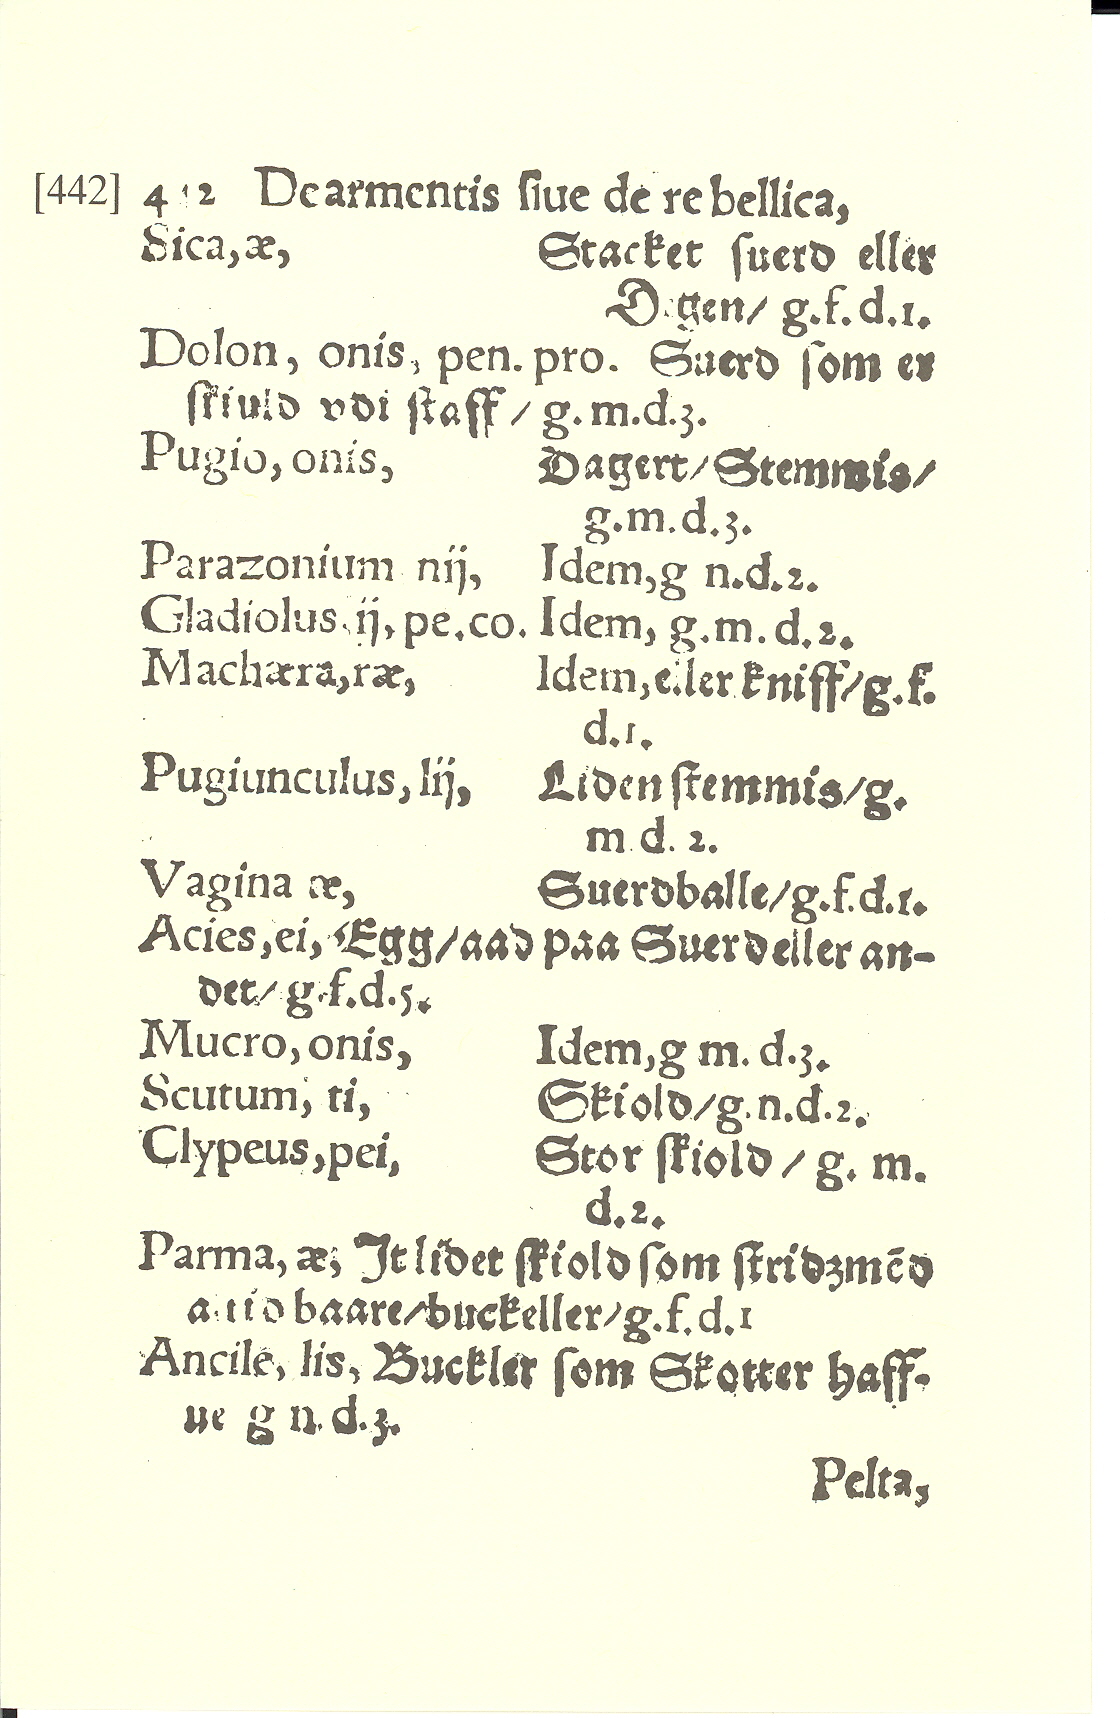 [442] 4 2 De armentis ſiue de re bellica,
Sica, æ, Stacket ſuerd eller
D gen/ g.f.d.1.
Dolon, onis, pen. pro. Suerd ſom er
ſkiuld vdi ſtaff/ g.m.d.3.
Pugio, onis, Dagert/ Stemmis/
g.m.d.3.
Parazonium nij, Idem, g n.d.2.
Gladiolus, ij, pe.co. Idem, g.m.d.2.
Machæra, ræ, Idem, eller kniff/ g.f.
d.1.
Pugiunculus, lij, Liden ſtemmis/ g.
m d. 2.
Vagina æ, Suerdballe/ g.f.d.1.
Acies, ei, Egg/ aad paa Suerd eller an-
det/ g.f.d.5.
Mucro, onis, Idem, g m. d.3.
Scutum, ti, Skiold/ g.n.d.2.
Clypeus, pei, Stor ſkiold/ g. m.
d.2.
Parma, æ, It lidet ſkiold ſom ſtridzmēd
baare/ buckeller/ g.f.d.1
Ancile, lis, Buckler ſom Skotter haff-
ue g n.d.3.
Pelta,